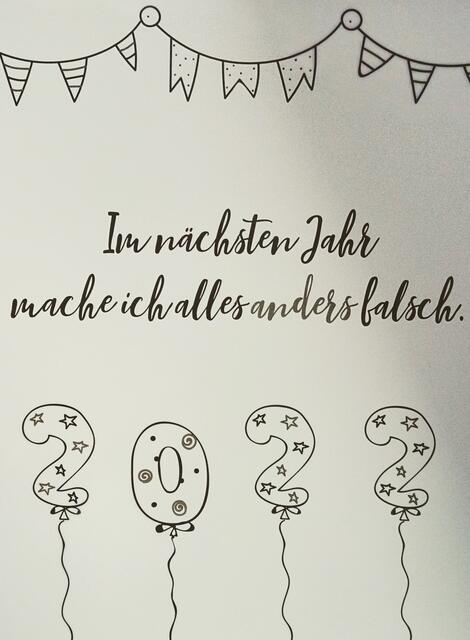 Im nächsten Jahr
mache ich alles anders falsch.
2022